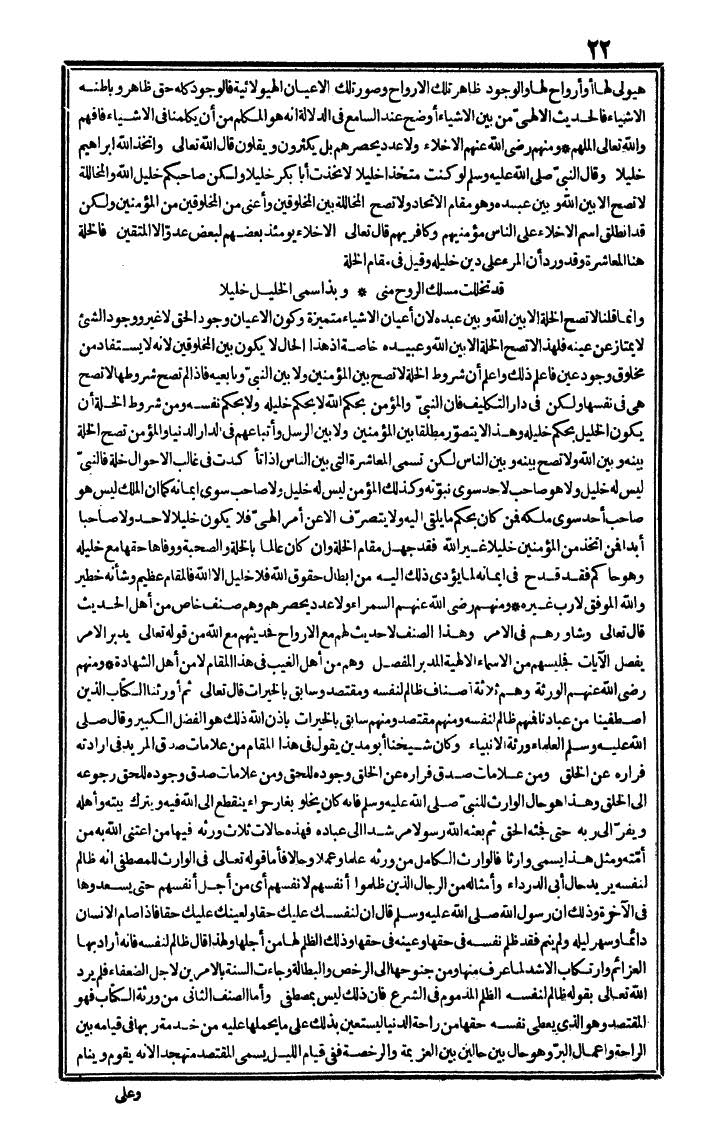 ٢٢
هيولى لها أو أرواح لها والوجود ظاهر تلك الارواح وصورتك الاعيان الهيولائية فالوجود كله حق ظاهر وباطنه
الاشياء فالحديث الالهىّ من بين الاشياء أوضح عند السامع فى الدلالة انه هو المكلم من أن يكلمنا فى الاشياء فافهم
والله تعالى الملهم * ومنهم رضى الله عنهم الاخلاء ولا عدد يحصرهم بل يكثرون ويقلون قال الله تعالى واتخذ الله ابراهيم
خليلا وقال النبىّ صلى الله عليه وسلم لو كنت متخذا خليلا لاتخذت أبا بكر خليلا ولكن صاحبكم خليل الله والمخاللة
لا تصح الا بين الله وبين عبيده وهو مقام الاتحاد ولا تصح المخاللة بين المخلوقين وأعنى من المخلوقين من المؤمنين ولكن
قد انطلق اسم الاخلاء على الناس مؤمنيهم وكافريهم قال تعالى الاخلاء يومئذ بعضهم لبعض عدوّ الا المتقين فالخلة
هنا المعاشرة وقد ورد أن المرء على دين خليله وقيل فى مقام الخلة
قد تخللت مسلك الروح منى * وبذا سمى الخليل خليلا
وانما قلنا لا تصح الخلة الا بين الله وبين عبده لان أعيان الاشياء متميزة وكون الاعيان وجود الحق لا غير ووجود الشئ
لا يمتاز عن عينه فلهذا لا تصح الخلة الا بين الله وعبيده خاصة اذ هذا الحال لا يكون بين المخلوقين لانه لا يستفاد من
مخلوق وجود عين فاعلم ذلك واعلم أن شروط الخلة لا تصح بين المؤمنين ولا بين النبىّ وتابعيه فاذا لم تصح شروطها لا تصح
هى فى نفسها ولكن فى دار التكليف فان النبىّ والمؤمن بحكم الله لا بحكم خليله ولا بحكم نفسه ومن شروط الخلة أن
يكون الخليل بحكم خليله وهذا لا يتصوّر مطلقا بين المؤمنين ولا بين الرسل وأتباعهم فى الدار الدنيا والمؤمن تصح الخلة
بينه وبين الله ولا تصح بينه وبين الناس لكن تسمى المعاشرة التى بين الناس اذا تأكدت فى غالب الاحوال خلة فالنبىّ
ليس له خليل ولا هو صاحب لاحد سوى نبوّته وكذلك المؤمن ليس له خليل ولا صاحب سوى ايمانه كما ان الملك ليس هو
صاحب أحد سوى ملكه فمن كان بحكم ما يلقى اليه ولا يتصرّف الا عن أمر الهىّ فلا يكون خليلا لاحد ولا صاحبا
أبدا فمن اتخذ من المؤمنين خليلا غير الله فقد جهل مقام الخلة وان كان عالما بالخلة والصحبة ووفاها حقها مع خليله
وهو حاكم فقد قدح فى ايمانه لما يؤدى ذلك اليه من ابطال حقوق الله فلا خليل الا الله فالمقام عظيم وشأنه خطير
والله الموفق لا رب غيره * ومنهم رضى الله عنهم السمراء ولا عدد يحصرهم وهم صنف خاص من أهل الحديث
قال تعالى وشاورهم فى الامر وهذا الصنف لا حديث لهم مع الارواح فحديثهم مع الله من قوله تعالى يدبر الامر
يفصل الآيات فجليسهم من الاسماء الالهية المدبر المفصل وهم من أهل الغيب فى هذا المقام لا من أهل الشهادة * ومنهم
رضى الله عنهم الورثة وهم ثلاثة أصناف ظالم لنفسه ومقتصد وسابق بالخيرات قال تعالى ثم أورثنا الكتاب الذين
اصطفينا من عبادنا فمنهم ظالم لنفسه ومنهم مقتصد ومنهم سابق بالخيرات باذن الله ذلك هو الفضل الكبير وقال صلى
الله عليه وسلم العلماء ورثة الانبياء وكان شيخنا أبو مدين يقول فى هذا المقام من علامات صدق المريد فى ارادته
فراره عن الخلق ومن علامات صدق فراره عن الخلق وجوده للحق ومن علامات صدق وجوده للحق رجوعه
الى الخلق وهذا هو حال الوارث للنبىّ صلى الله عليه وسلم فانه كان يخلو بغار حراء ينقطع الى الله فيه ويترك بيته وأهله
ويفرّ الى ربه حتى فجئه الحق ثم بعثه الله رسولا مرشدا الى عباده فهذه حالات ثلاث ورثه فيها من اعتنى الله به من
أمّته ومثل هذا يسمى وارثا فالوارث الكامل من ورثه علما وعملا وحالا فأما قوله تعالى فى الوارث للمصطفى انه ظالم
لنفسه يريد حال أبى الدرداء وأمثاله من الرجال الذين ظلموا أنفسهم لانفسهم أى من أجل أنفسهم حتى يسعدوها
فى الآخرة وذلك ان رسول الله صلى الله عليه وسلم قال ان لنفسك عليك حقا ولعينك عليك حقا فاذا صام الانسان
دائما وسهر ليله ولم ينم فقد ظلم نفسه فى حقها وعينه فى حقها وذلك الظلم لها من أجلها ولهذا قال ظالم لنفسه فانه أراد بها
العزائم وارتكاب الاشد لما عرف منها ومن جنوحها الى الرخص والبطالة وجاءت السنة بالامرين لاجل الضعفاء فلم يرد
الله تعالى بقوله ظالم لنفسه الظلم المذموم فى الشرع فان ذلك ليس بمصطفى وأما الصنف الثانى من ورثة الكتاب فهو
المقتصد وهو الذى يعطى نفسه حقها من راحة الدنيا ليستعين بذلك على ما يحملها عليه من خدمة ربها فى قيامه بين
الراحة واعمال البرّ وهو حال بين حالين بين العزيمة والرخصة ففى قيام الليل يسمى المقتصد متهجدا لانه يقوم وينام
وعلى